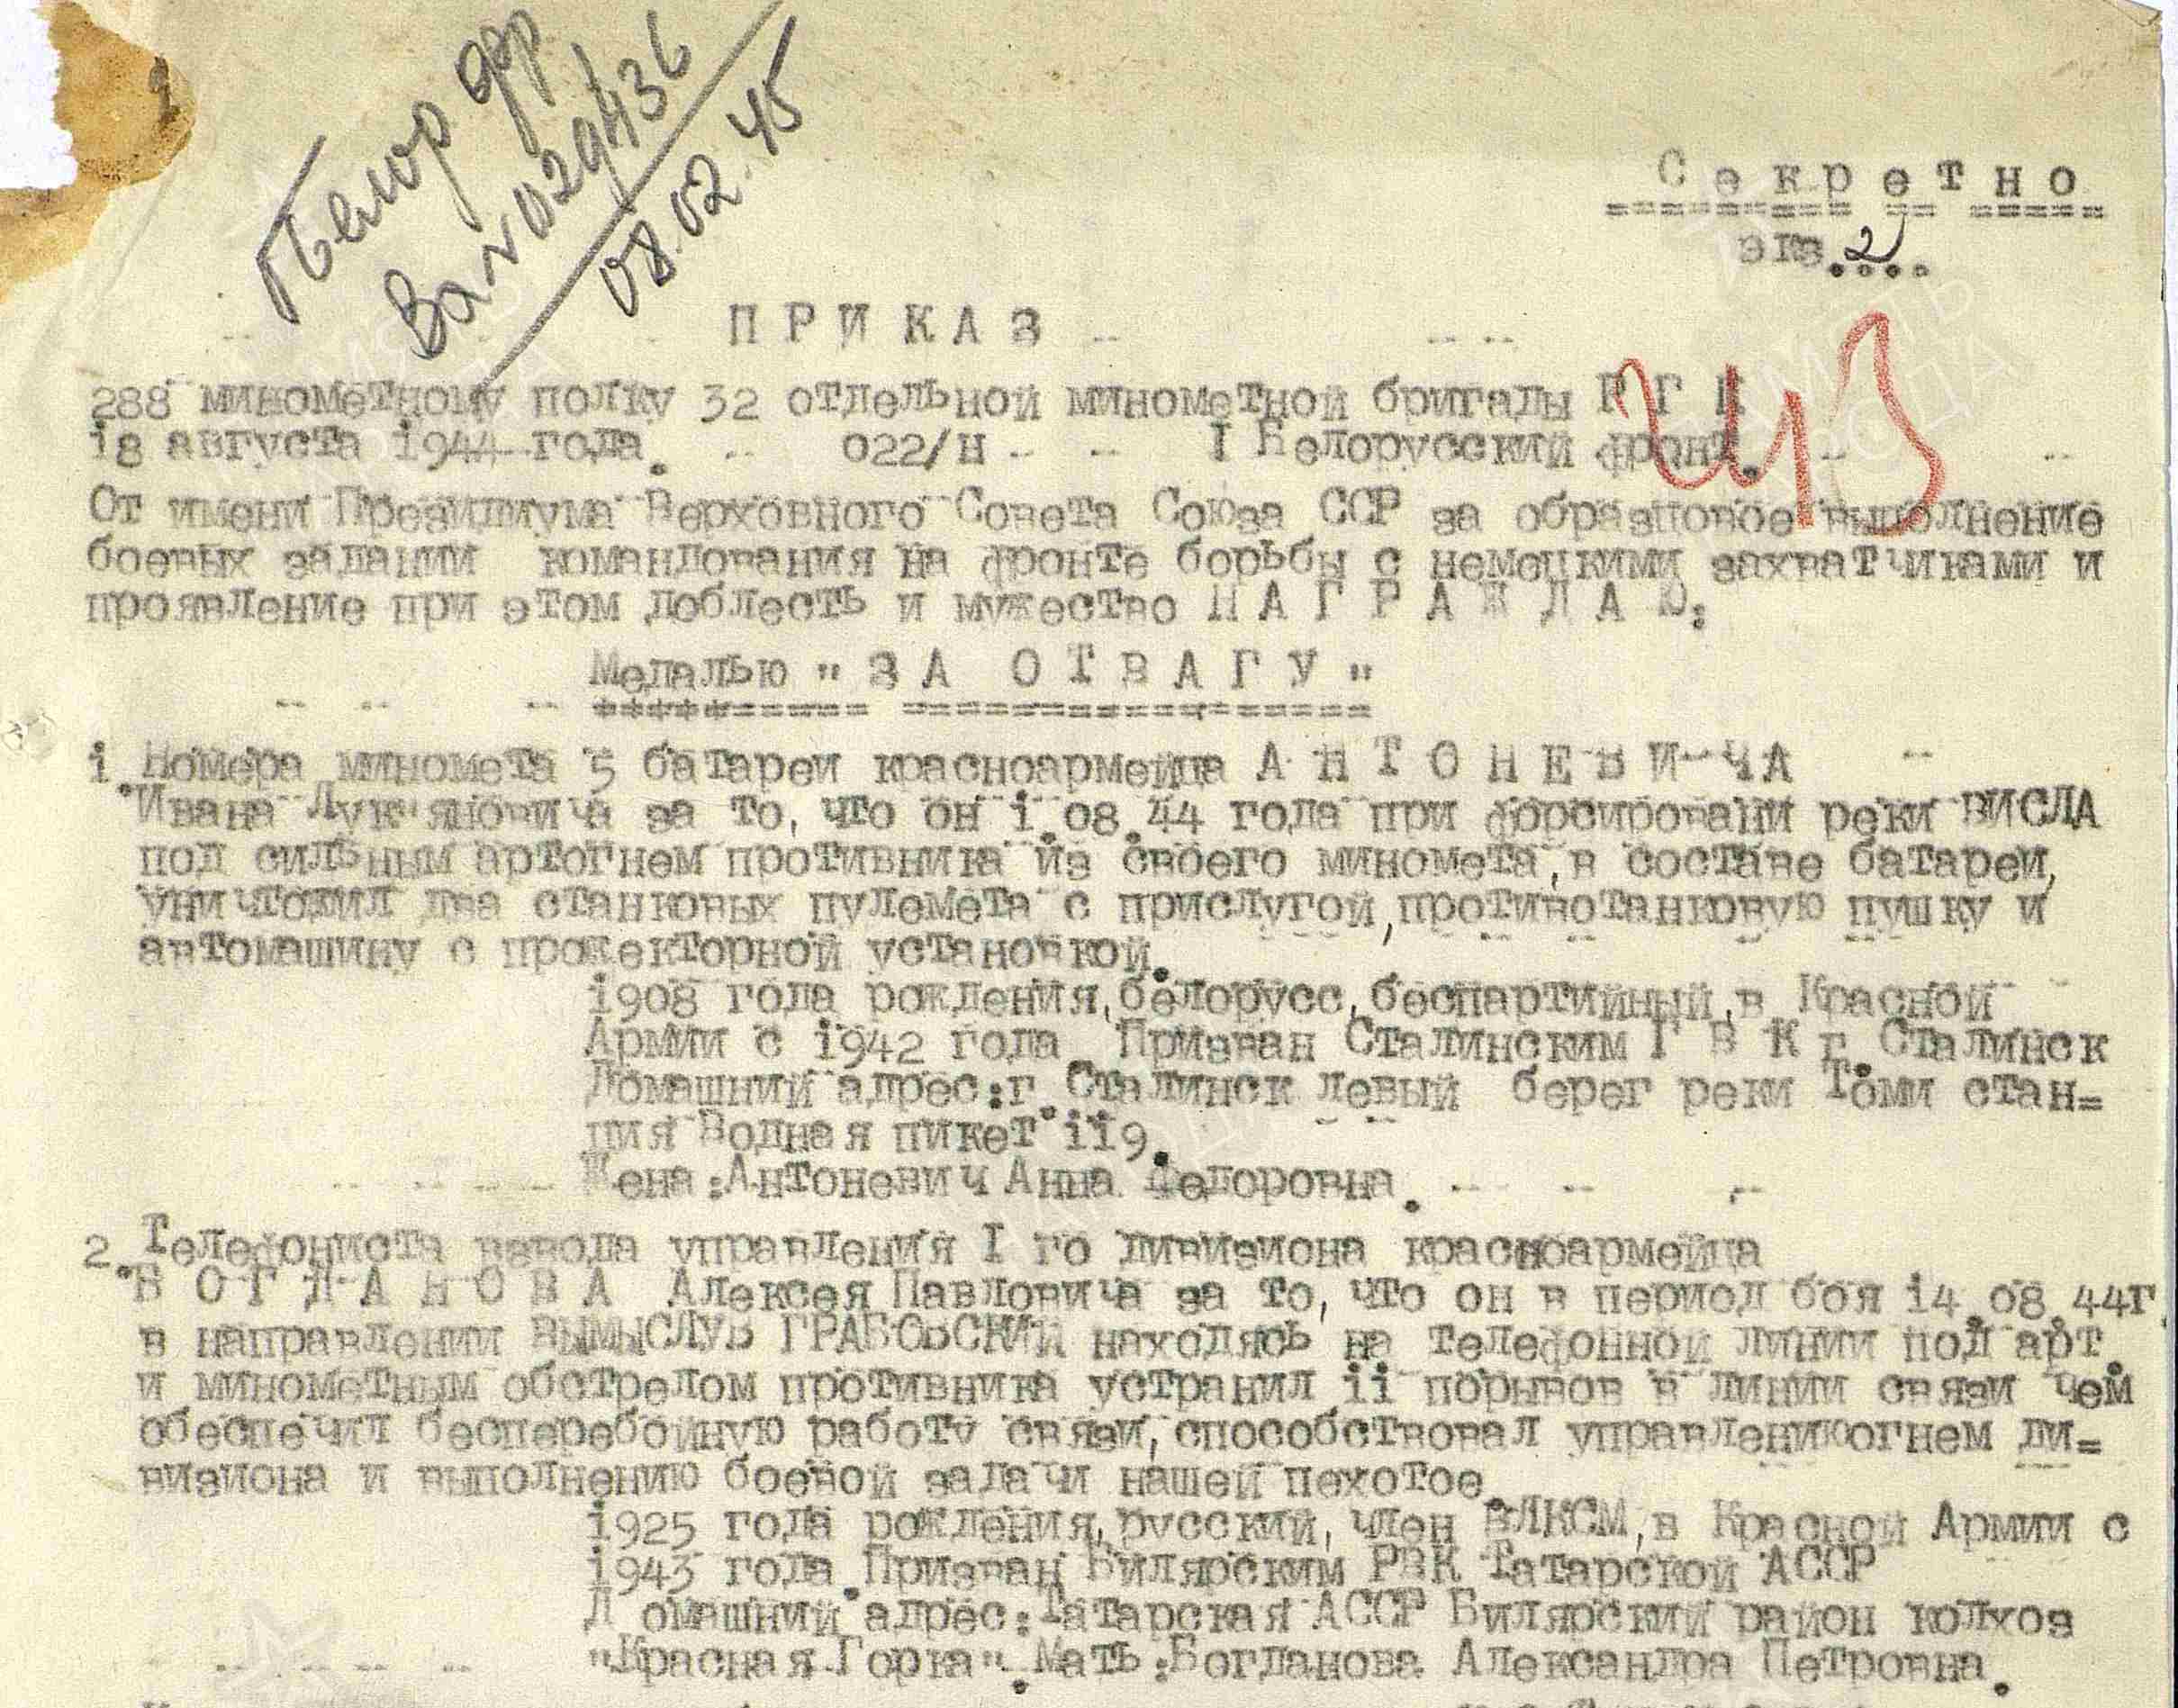 Белор фр
Вх N 029436
08.02.45
Секретно
экз.2...
ПРИКАЗ
288 минометному полку 32 отдельной минометной бригады Р Г К
18 августа 1944 года. 022/н I Белорусский фронт.
От имени Президиума Верховного Совета Союза ССР за образцовое выполнение
боевых задании командования на фронте борьбы с немецкими захватчиками и
проявление при этом доблесть и мужество Н А Г Р А Ж Д А Ю:
Медалью " ЗА ОТВАГУ "
1. Номера миномета 5 батареи красноармейца А Н Т О Н Е В И Ч А
Ивана Лук'яновича за то, что он 1.08.44 года при форсировани реки ВИСЛА
под сильным артогнем противника из своего миномета, в составе батареи,
уничтожил два станковых пулемета с прислугой, противотанковую пушку и
автомашину с прожекторной установкой.
1908 года рождения, белорусс, беспартийный, в Красной
Армии с 1942 года. Призван Сталинским Г В К г. Сталинск
Домашний адрес: г. Сталинск левый берег реки Томи стан=
ция Водная пикет 119.
Жена: Антоневич Анна Федоровна.
2. Телефониста взвода управления I го дивизиона красноармейца
Б О Г Д А Н О В А Алексея Павловича за то, что он в период боя 14.08.44г.
в направлении ВЫМЫСЛУВ ГРАБОВСКИЙ находясь на телефонной линии под арт.
и минометным обстрелом противника устранил 11 порывов в линии связи чем
обеспечил бесперебойную работу связи, способствовал управлениюогнем ди=
визиона и выполнению боевой задачи нашей пехотое.
1925 года рождения, русский, член ВЛКСМ, в Красной Армии с
1943 года. Призван Билярским РВК Татарской АССР
Д омашний адрес: Татарская АССР Билярский район колхоз
"Красная Горка". Мать: Богданова Александра Петровна.